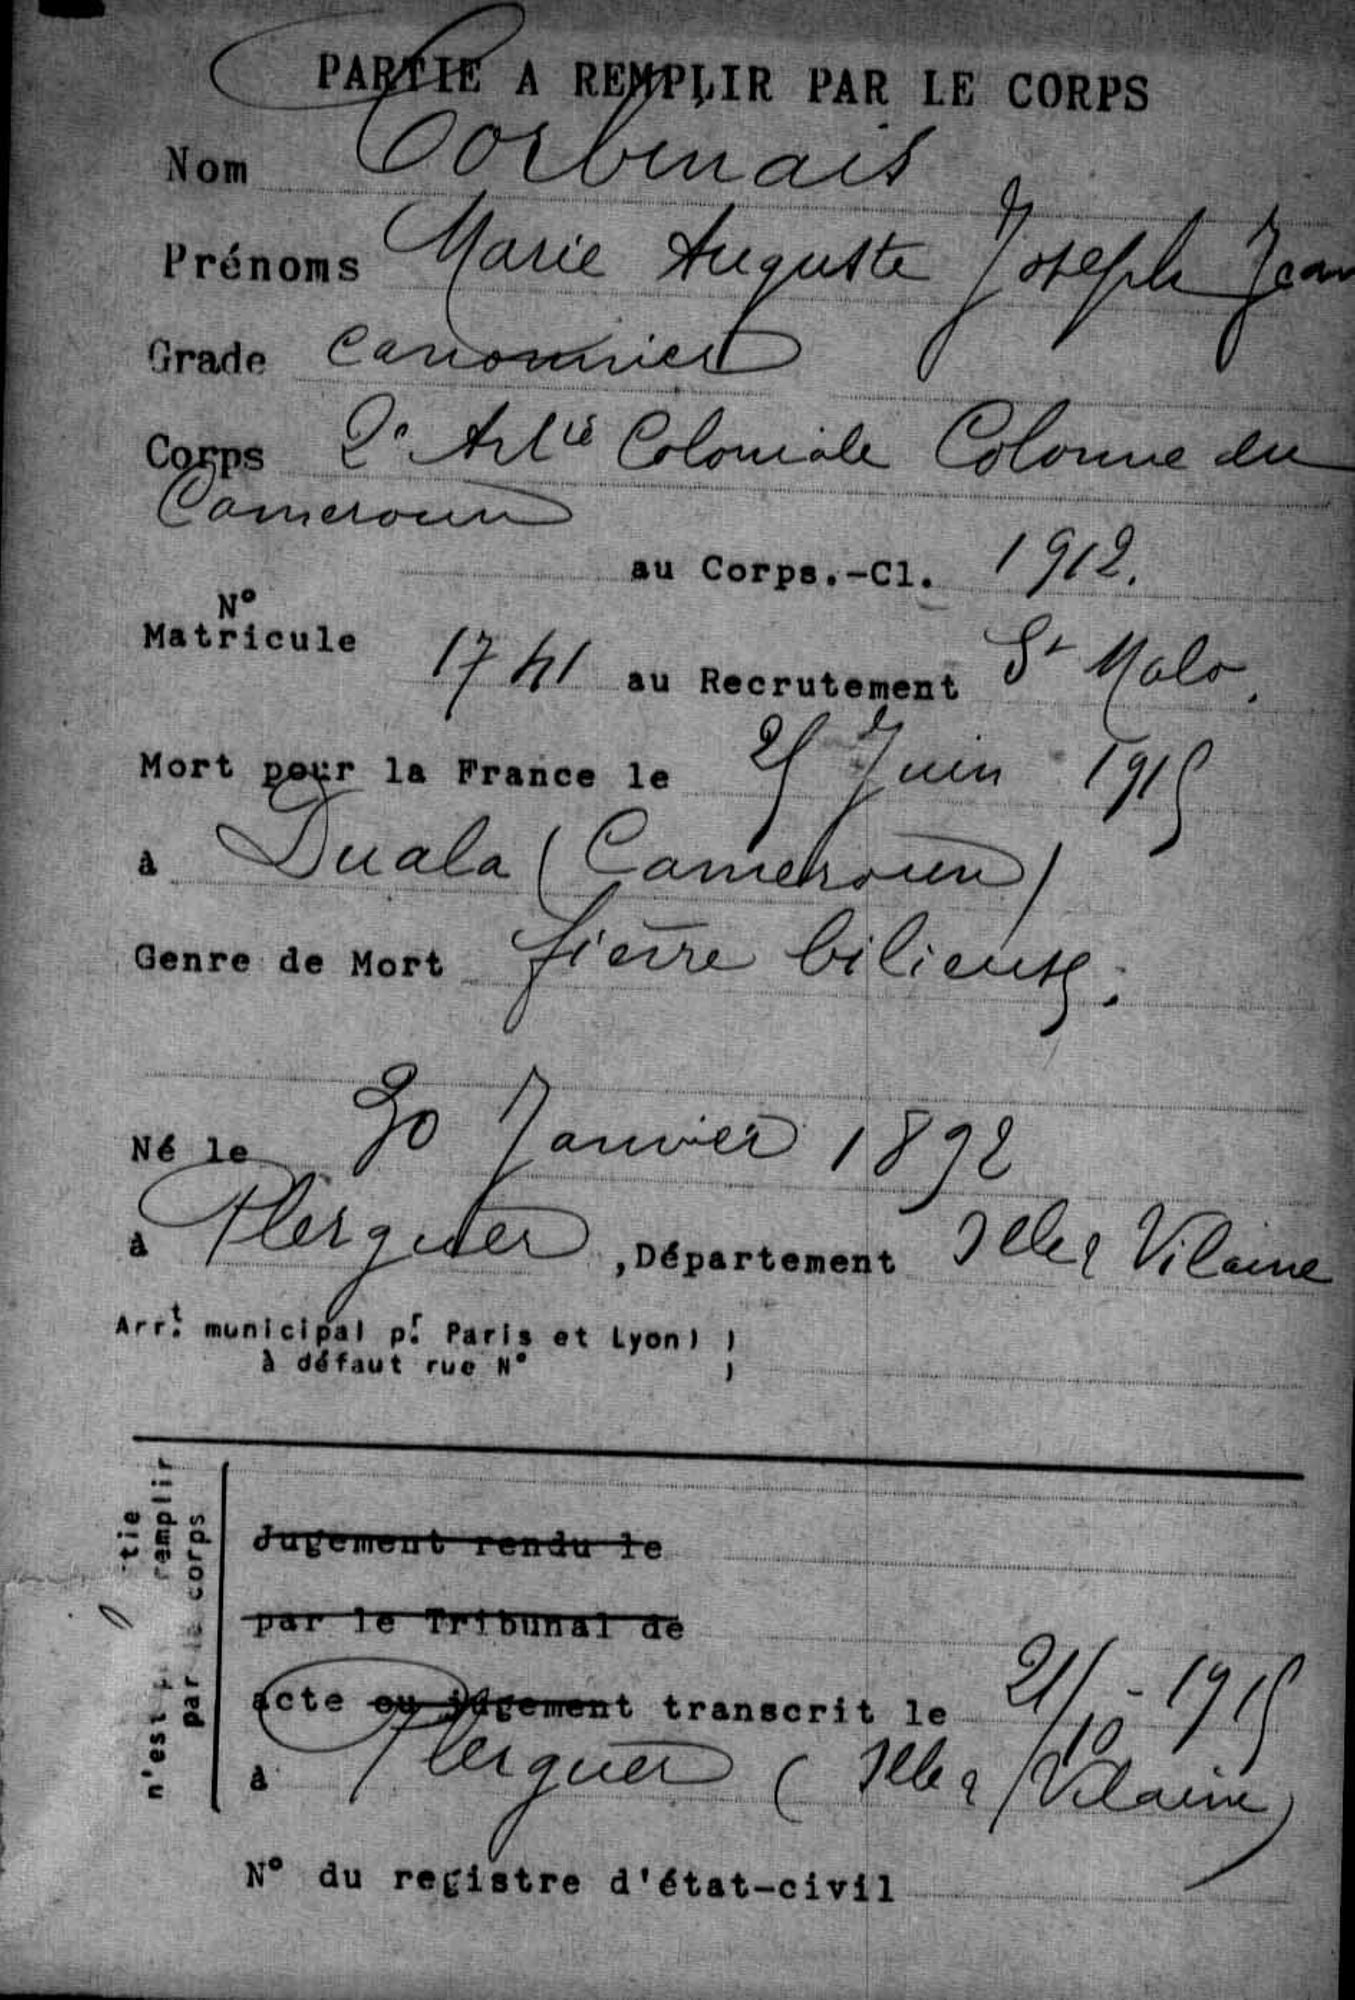 PARTIE A REMPLIR PAR LE CORPS
Nom Corbinais
Prénoms Marie Auguste Joseph Jean
Grade Canonnier
Corps 2e Artie Coloniale Colonne du
Cameroun
au Corps.-Cl. 1912.
N°
Matricule 1741 au Recrutement St Malo.
Mort pour la France le 25 Juin 1915
à Duala (Cameroun)
Genre de Mort fièvre bilieuse.
Né le 30 Janvier 1892
à Plerguer, Département Ille & Vilaine
Arr.t municipal p.r Paris et Lyon) )
à défaut rue N° )
tie
remplir
n'est
par le corps
Jugement rendu le
par le Tribunal de
acte ou jugement transcrit le 21/10-1915
à Plerguer (Ille & Vilaine)
N° du registre d'état-civil